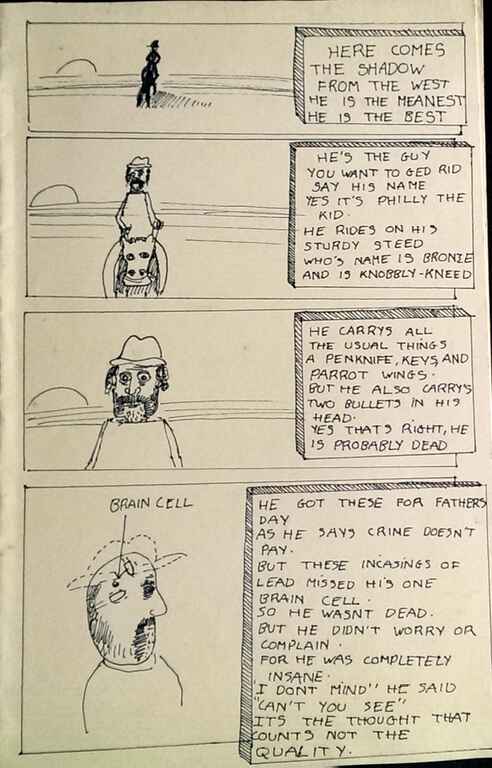 HERE COMES
THE SHADOW
FROM THE WEST
HE IS THE MEANEST
HE IS THE BEST
HE'S THE GUY
YOU WANT TO GED RID
SAY HIS NAME
YES IT'S PHILLY THE
KID.
HE RIDES ON HIS
STURDY STEED
WHO'S NAME IS BRONIE
AND IS KNOBBLY-KNEED
HE CARRYS ALL
THE USUAL THINGS
A PENKNIFE, KEYS, AND
PARROT WINGS.
BUT HE ALSO CARRYS
TWO BULLETS IN HIS
HEAD.
YES THATS RIGHT, HE
IS PROBABLY DEAD
BRAIN CELL
HE GOT THESE FOR FATHERS
DAY
AS HE SAYS CRINE DOESN'T
PAY.
BUT THESE INCASINGS OF
LEAD MISSED HIS ONE
BRAIN CELL.
SO HE WASNT DEAD.
BUT HE DIDN'T WORRY OR
COMPLAIN.
FOR HE WAS COMPLETELY
INSANE.
"I DONT MIND" HE SAID
"CAN'T YOU SEE"
ITS THE THOUGHT THAT
COUNTS NOT THE
QUALITY.